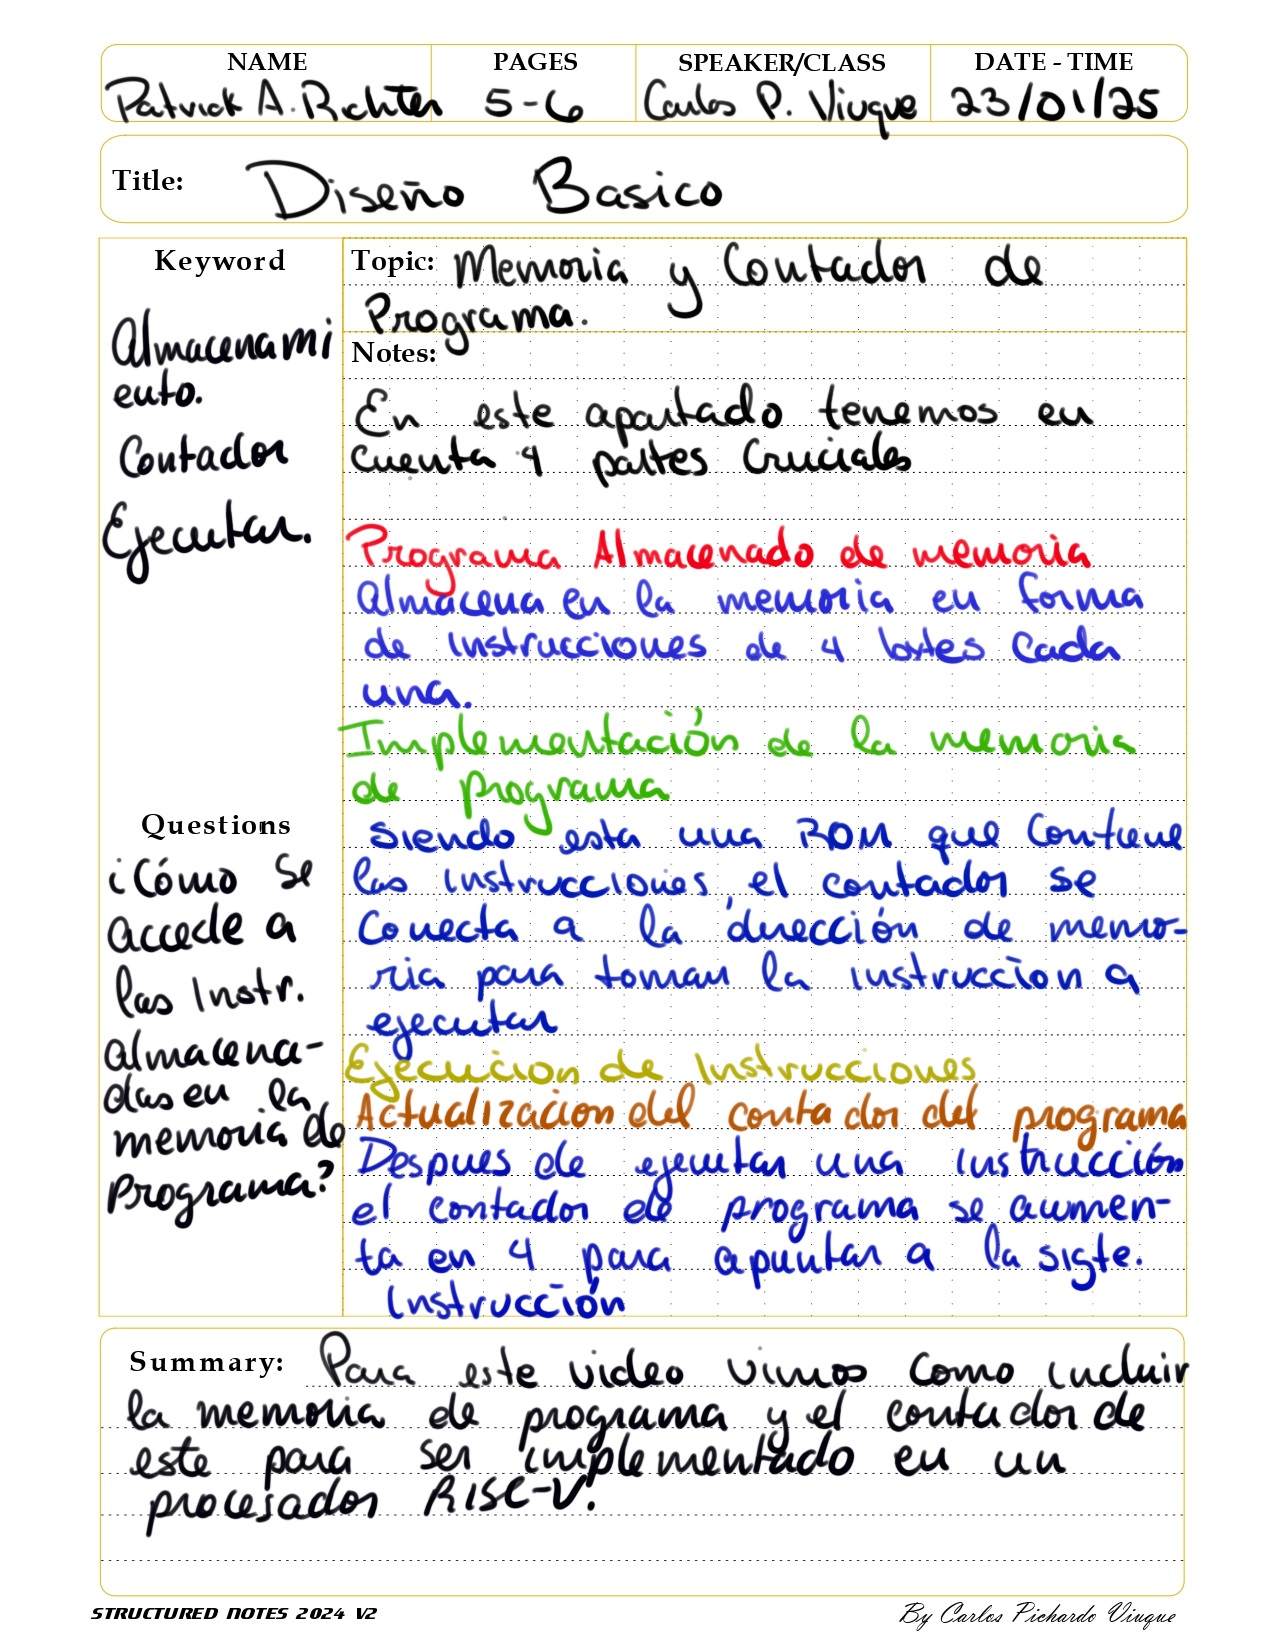 NAME PAGES SPEAKER/CLASS DATE - TIME
Patrick A. Richter 5-6 Carlos P. Viuque 23/01/25
Title: Diseño Basico
Keyword
Almacenami
ento.
Contador
Ejecutar.
Topic: Memoria y Contador de
Programa.
Notes:
En este apartado tenemos en
cuenta 4 partes Cruciales
Programa Almacenado de memoria
Almacena en la memoria en forma
de instrucciones de 4 bytes Cada
una.
Implementación de la memoria
de programa
Siendo esta una ROM que Contiene
las instrucciones, el contador se
Conecta a la dirección de memo-
ria para tomar la instruccion a
ejecutar
Ejecucion de Instrucciones
Actualizacion del contador del programa
Despues de ejecutar una instrucción
el contador de programa se aumen-
ta en 4 para apuntar a la sigte.
Instrucción
Questions
¿Cómo Se
accede a
las Instr.
almacena-
das en la
memoria de
Programa?
Summary: Para este video vimos como incluir
la memoria de programa y el contador de
este para ser implementado en un
procesador RISC-V.
STRUCTURED NOTES 2024 V2 By Carlos Pichardo Viuque